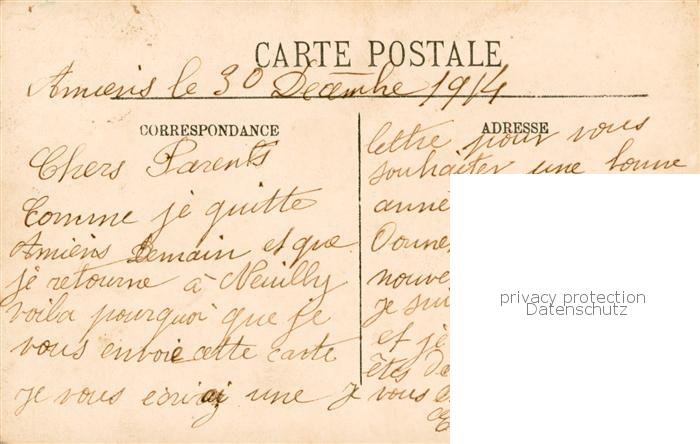 CARTE POSTALE
Amiens le 30 Décembre 1914
CORRESPONDANCE
Chers Parents
Comme je quitte
Amiens demain et que
je retourne à Neuilly
voila pourquoi que je
vous envoie cette carte
je vous écrirai une
ADRESSE
lettre pour vous
souhaiter une bonne
anné
Donne
nouve
je sui
et je
êtes de
vous
privacy protection
Datenschutz